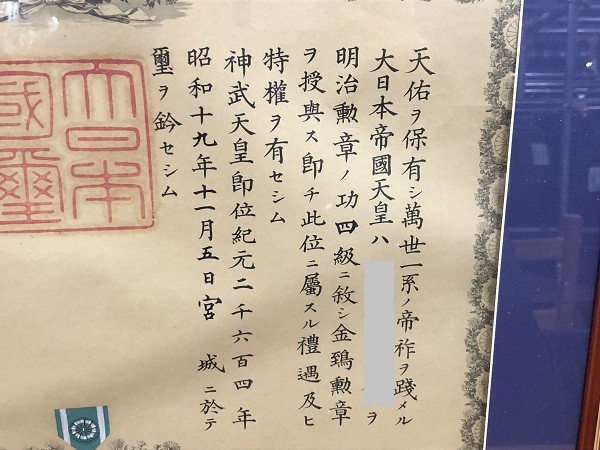 天佑ヲ保有シ萬世一系ノ帝祚ヲ踐メル
大日本帝國天皇ハ ヲ
明治勲章ノ功四級ニ敘シ金鵄勲章
ヲ授與ス即チ此位ニ屬スル禮遇及ヒ
特權ヲ有セシム
神武天皇即位紀元二千六百四年
昭和十九年十一月五日宮城ニ於テ
璽ヲ鈐セシム
大日本
國璽